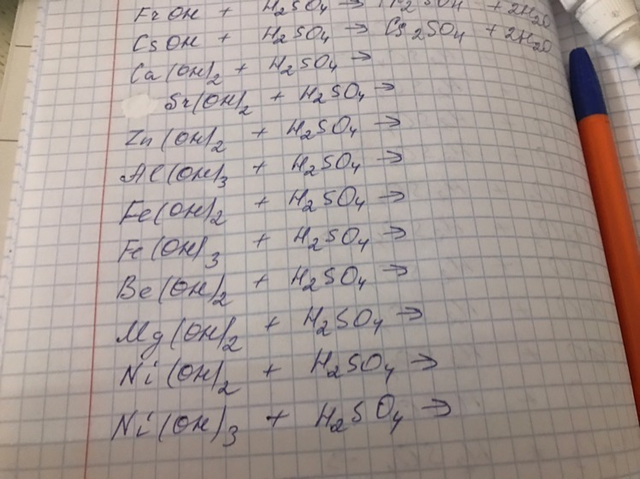 FrOH + H2SO4 → Fr2SO4 + 2H2O
CsOH + H2SO4 → Cs2SO4 + 2H2O
Ca(OH)2 + H2SO4 →
Sr(OH)2 + H2SO4 →
Zn(OH)2 + H2SO4 →
Al(OH)3 + H2SO4 →
Fe(OH)2 + H2SO4 →
Fe(OH)3 + H2SO4 →
Be(OH)2 + H2SO4 →
Mg(OH)2 + H2SO4 →
Ni(OH)2 + H2SO4 →
Ni(OH)3 + H2SO4 →